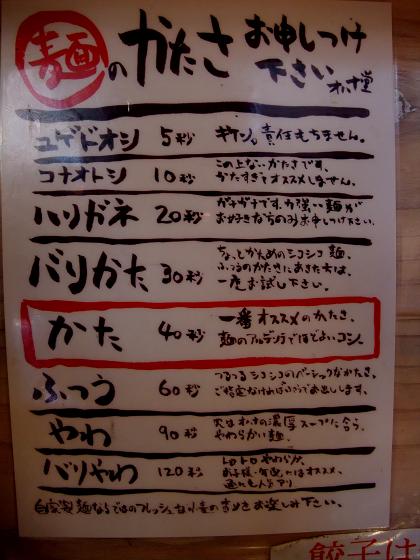 麺のかたさお申しつけ
下さい
ユゲドオシ 5秒 キケン。責任もちません。
コナオトシ 10秒 この上ないかたさです。
かたすぎてオススメしません。
ハリガネ 20秒 ガチガチです。力強い麺が
お好きな方のみお申しつけ下さい。
バリかた 30秒 ちょっとかためのシコシコ麺、
ふつうのかたさにあきた方は、
一度お試し下さい。
かた 40秒 一番オススメのかたさ。
麺のアルデンテでほどよいコシ。
ふつう 60秒 つるつるシコシコのベーシックなかたさ。
ご指定なければふつうでお出しします。
やわ 90秒 濃厚スープに合う、
やわらかい麺。
バリやわ 120秒 トロトロやわらか。
お子様・年配の方にはオススメ、
自家製麺ならではのフレッシュな小麦のうまさお楽しみ下さい。
餃子は